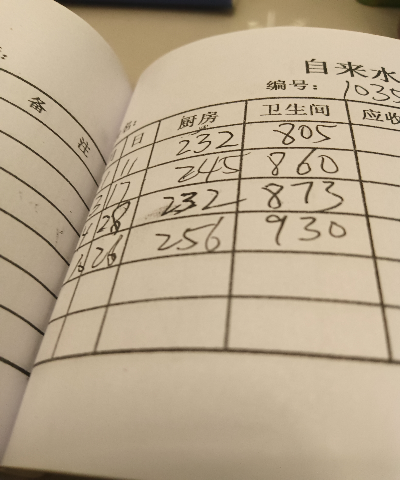 备注
自来水
编号: 1035
日 厨房 卫生间 应收
11 232 805
17 245 860
28 232 873
26 256 930